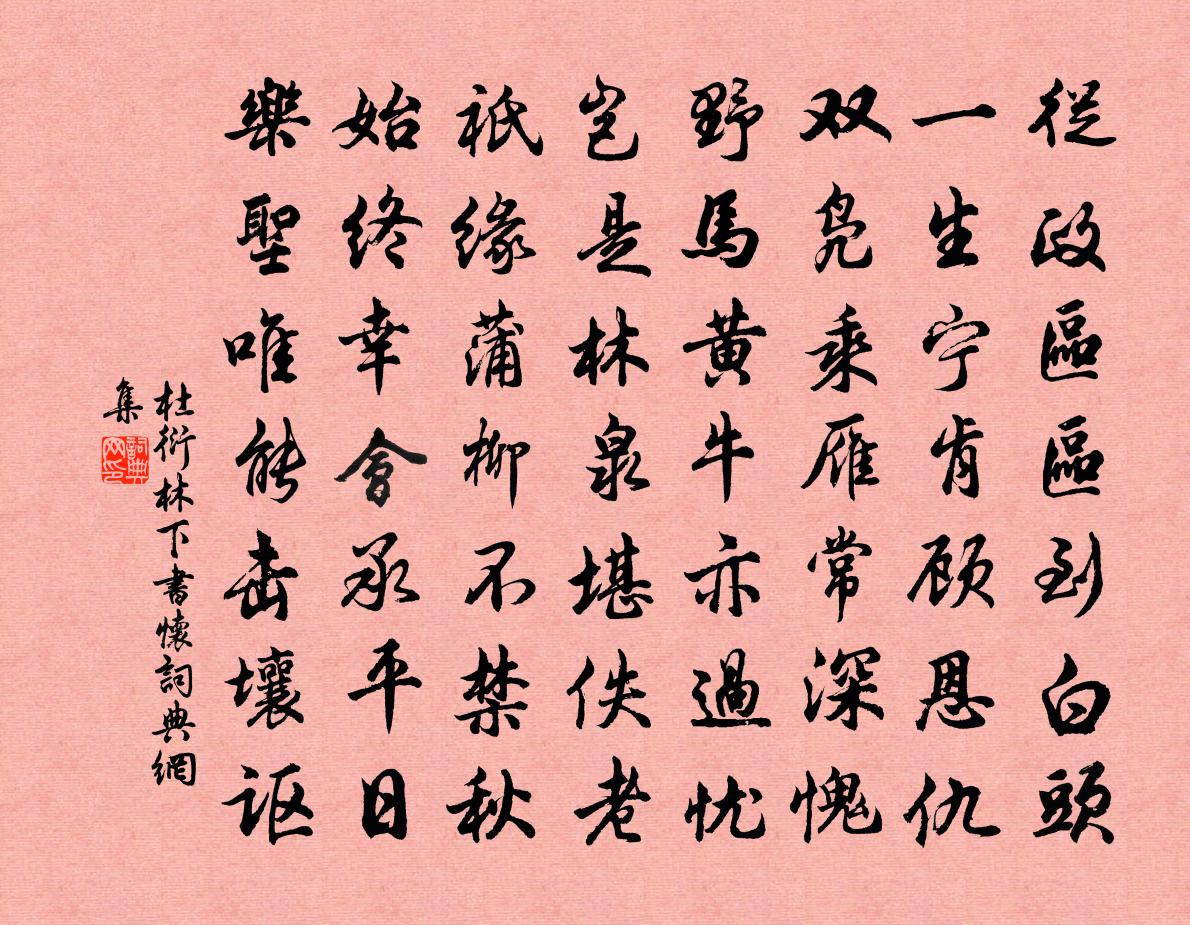 從政區區到白頭
一生宁肯顾恩仇
双凫乘雁常深愧
野馬黄牛亦過忧
岂是林泉堪佚老
祇缘蒲柳不禁秋
始终幸會承平日
樂聖唯能击壤讴
杜衍林下書懷詞典網
集
詞典网印